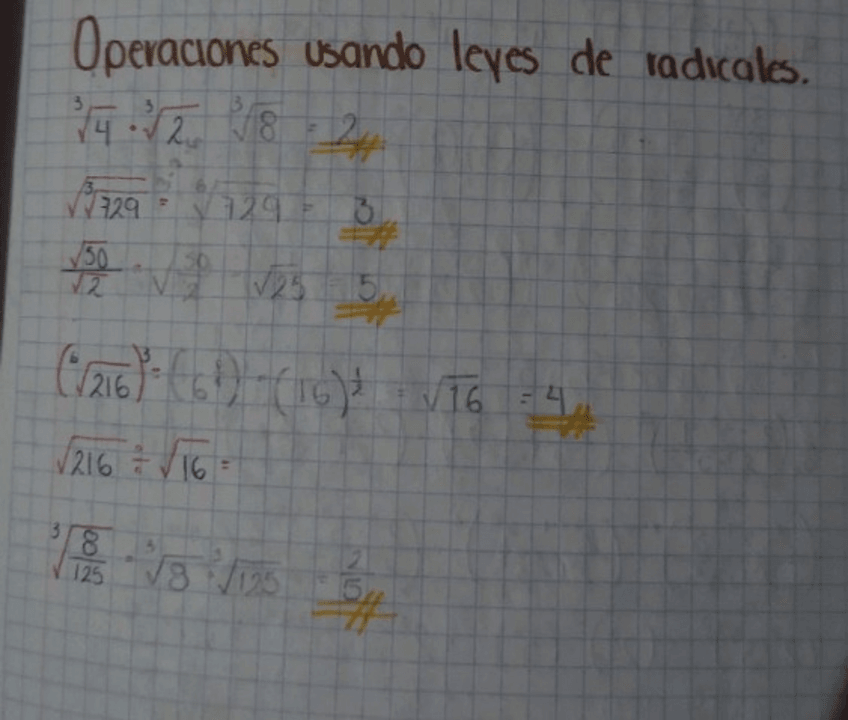 Operaciones usando leyes de radicales.
∛4 · ∛2 ∛8 = 2
√∛729 = ⁶√729 = 3
√50/√2 = √50/2 √25 5
(⁶√216)³ = (16)^½ = √16 = 4
√216 ÷ √16 =
∛8/125 ∛8 ∛125 = 2/5